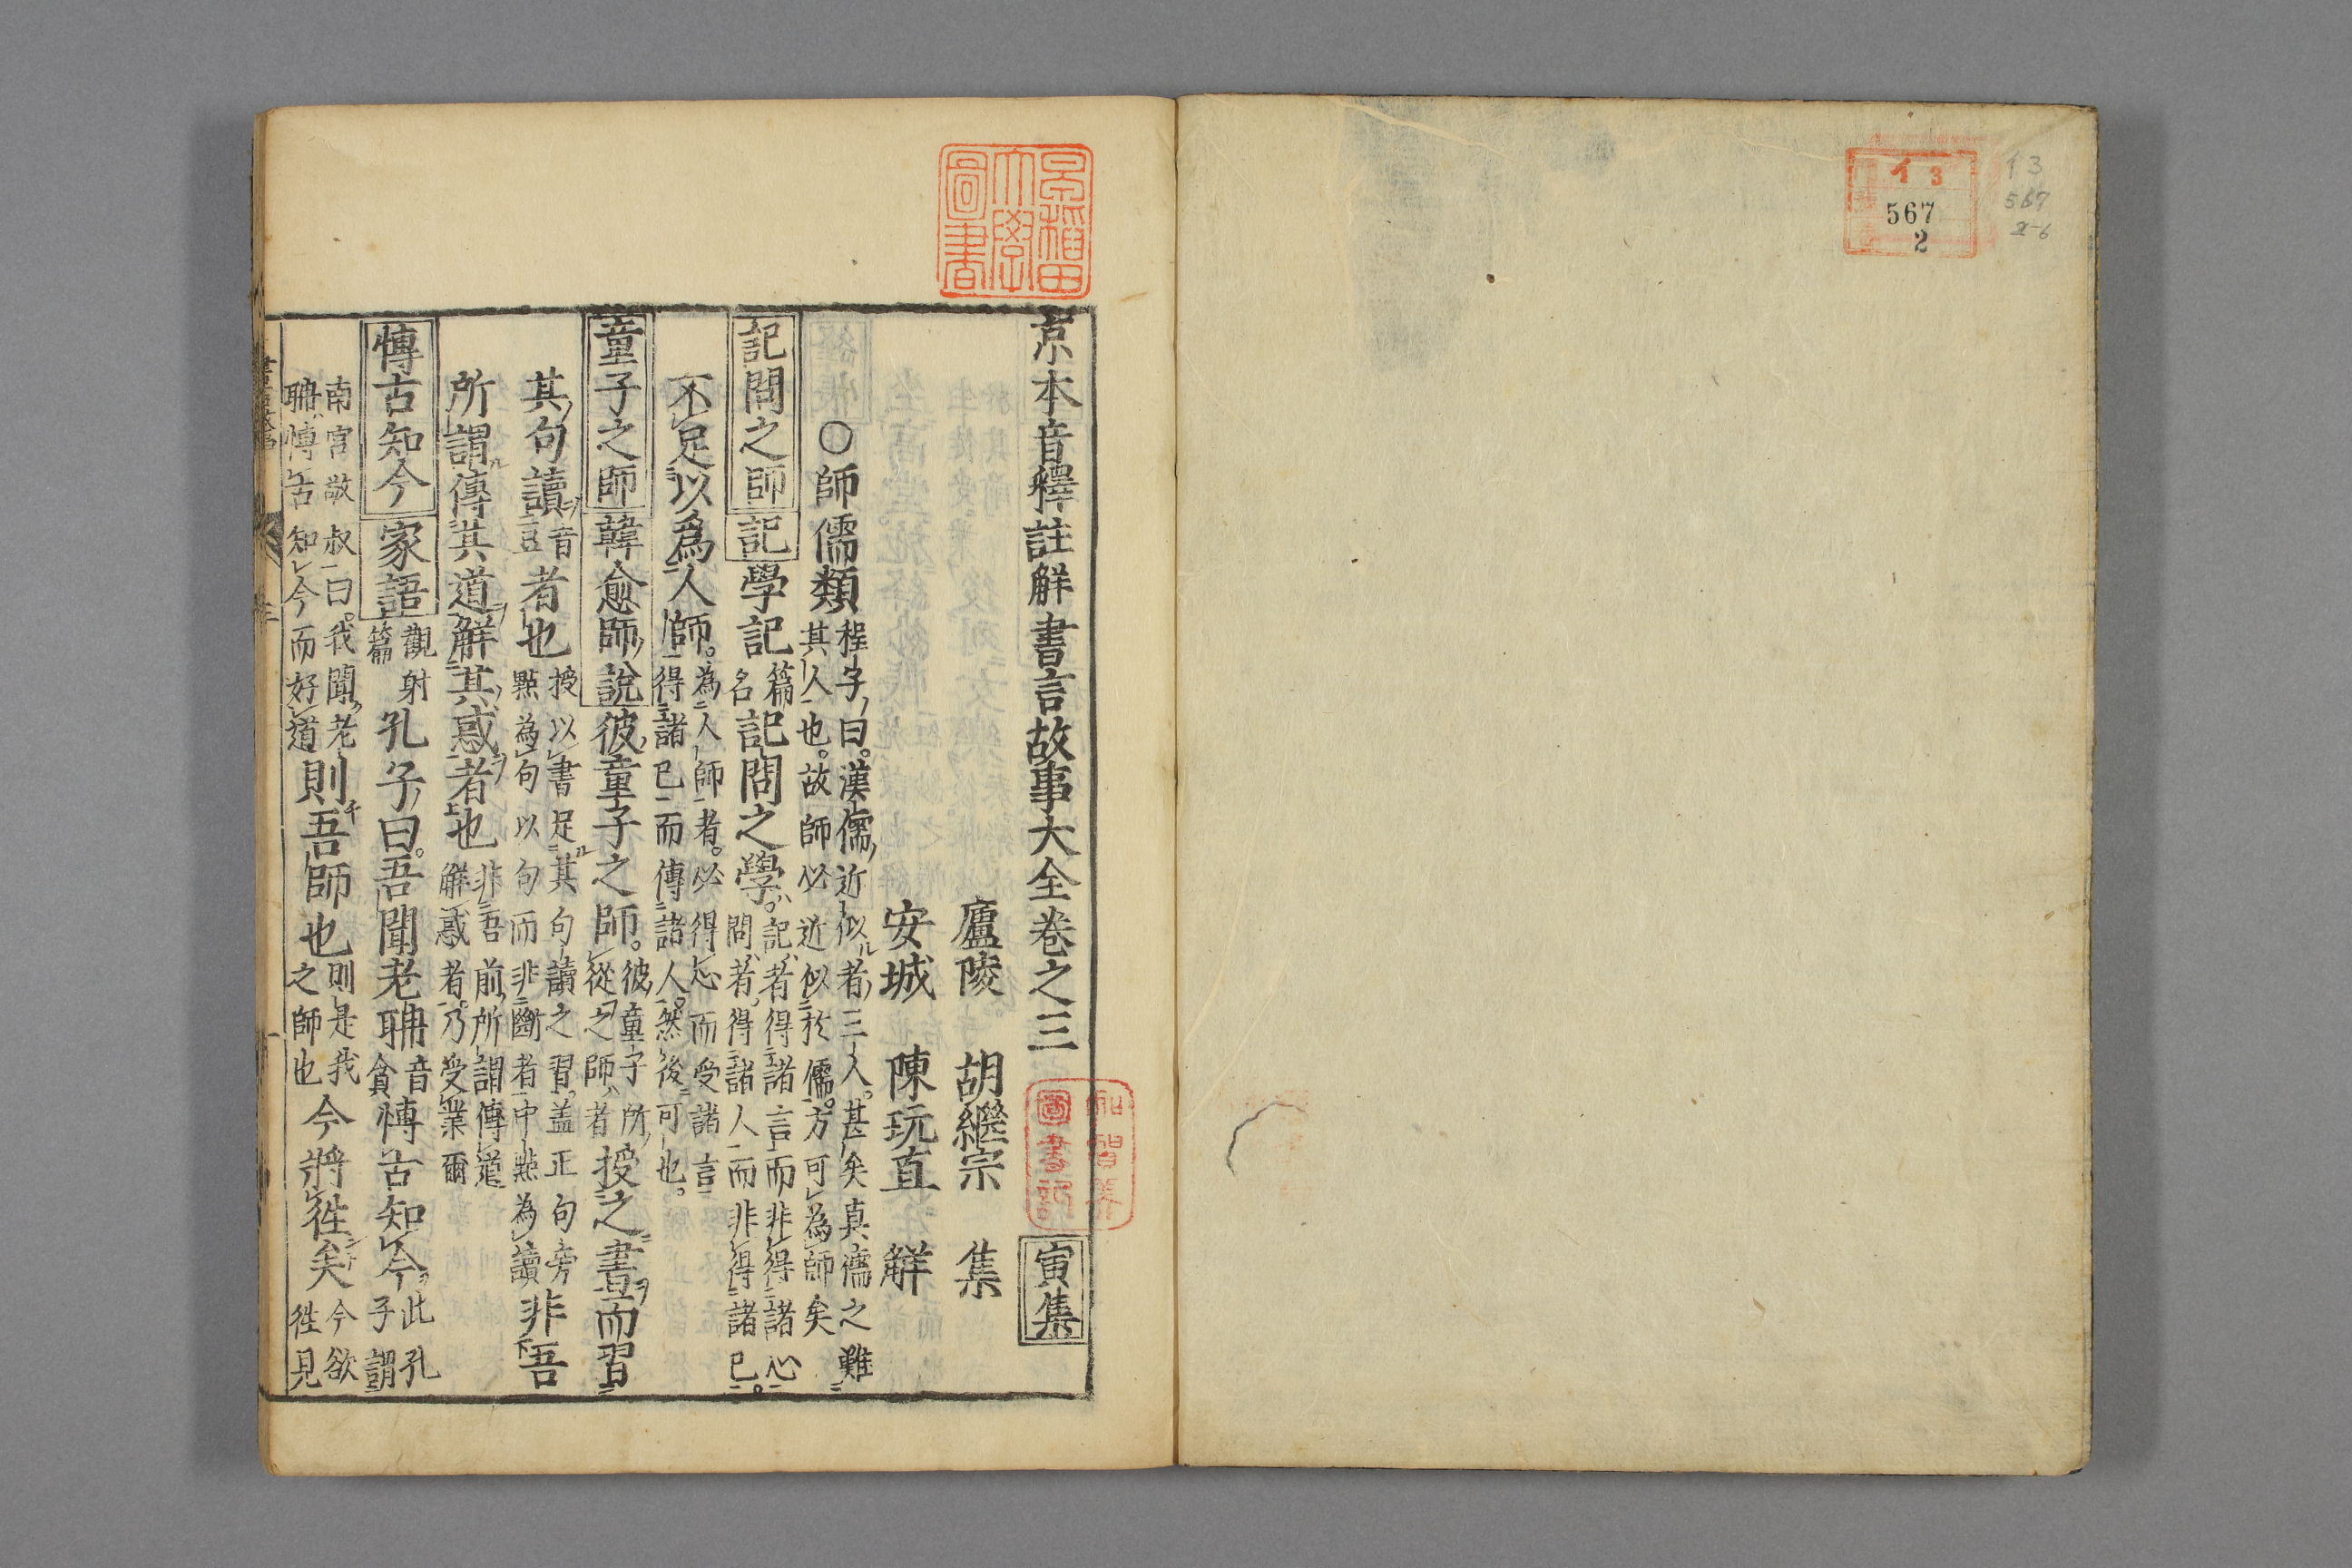 イ3
567
2
イ3
567
2-6
早稲田
大學
圖書
京本音釋註解書言故事大全卷之三 寅集
廬陵 胡繼宗 集
安城 陳玩直 解
〇師儒類 程子曰。漢儒近似者三人。甚矣真儒之難
其人也。故師必近似於儒。方可為師矣
記問之師 記 學記 篇名 記問之學。 記者得諸言而非得諸心
問者得諸人而非得諸已。
不足以為人師。 為人師者。必得心而受諸言
得諸已而傳諸人。然後可也。
童子之師 韓愈師說 彼童子之師。 彼童子所
從之師者 授之書而習
其句讀 音豆 者也 授以書足其句讀之習。盖正句旁
點為句以句而非斷者中點為讀 非吾
所謂傳其道解其惑者也 非吾前所謂傳道
解惑者。乃受業爾
博古知今 家語 觀射篇 孔子曰。吾聞老聃 音貪 博古知今 此孔
子謂
南宮敬叔曰。我聞老
聃博古知今而好道 則吾師也 則是我
之師也 今將往矣 今欲
往見